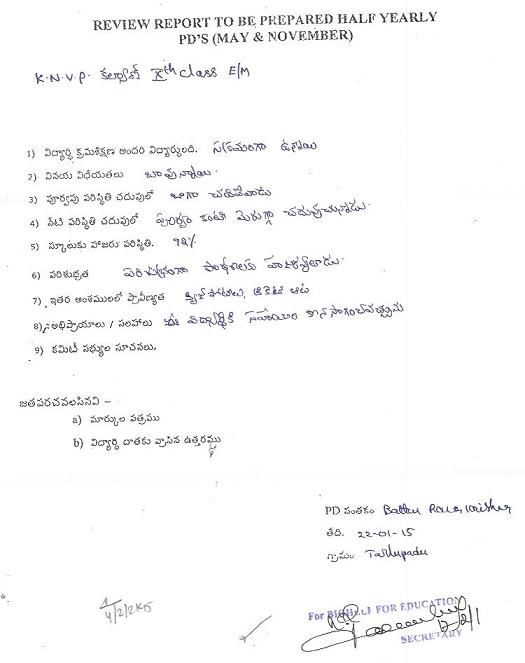 REVIEW REPORT TO BE PREPARED HALF YEARLY
PD'S (MAY & NOVEMBER)
K.N.V.P. కల్యాణ్ Xth class E/M
1) విద్యార్థి క్రమశిక్షణ అందరి విద్యార్థులది. సక్రమంగా ఉన్నాయి
2) వినయ విధేయతలు బావున్నాయి.
3) పూర్వపు పరిస్థితి చదువులో బాగా చదివేవాడు
4) నేటి పరిస్థితి చదువులో పూర్వం కంటే మెరుగ్గా చదువుచున్నాడు.
5) స్కూలుకు హాజరు పరిస్థితి. 92%
6) పరిశుభ్రత పరిశుభ్రంగా పాఠశాలకు హాజరవుతాడు.
7) ఇతర అంశములలో ప్రావీణ్యత క్విజ్ పోటీలు, క్రికెట్ ఆట
8) అభిప్రాయాలు / సలహాలు ఈ విద్యార్థికి సహాయం కొనసాగించవచ్చును
9) కమిటీ సభ్యుల సూచనలు.
జతపరచవలసినవి –
a) మార్కుల పత్రము
b) విద్యార్థి దాతకు వ్రాసిన ఉత్తరము
PD సంతకం
తేది. 22-01-15
గ్రామం Tallupadu
4/2/2015
For BIGHELP FOR EDUCATION
SECRETARY